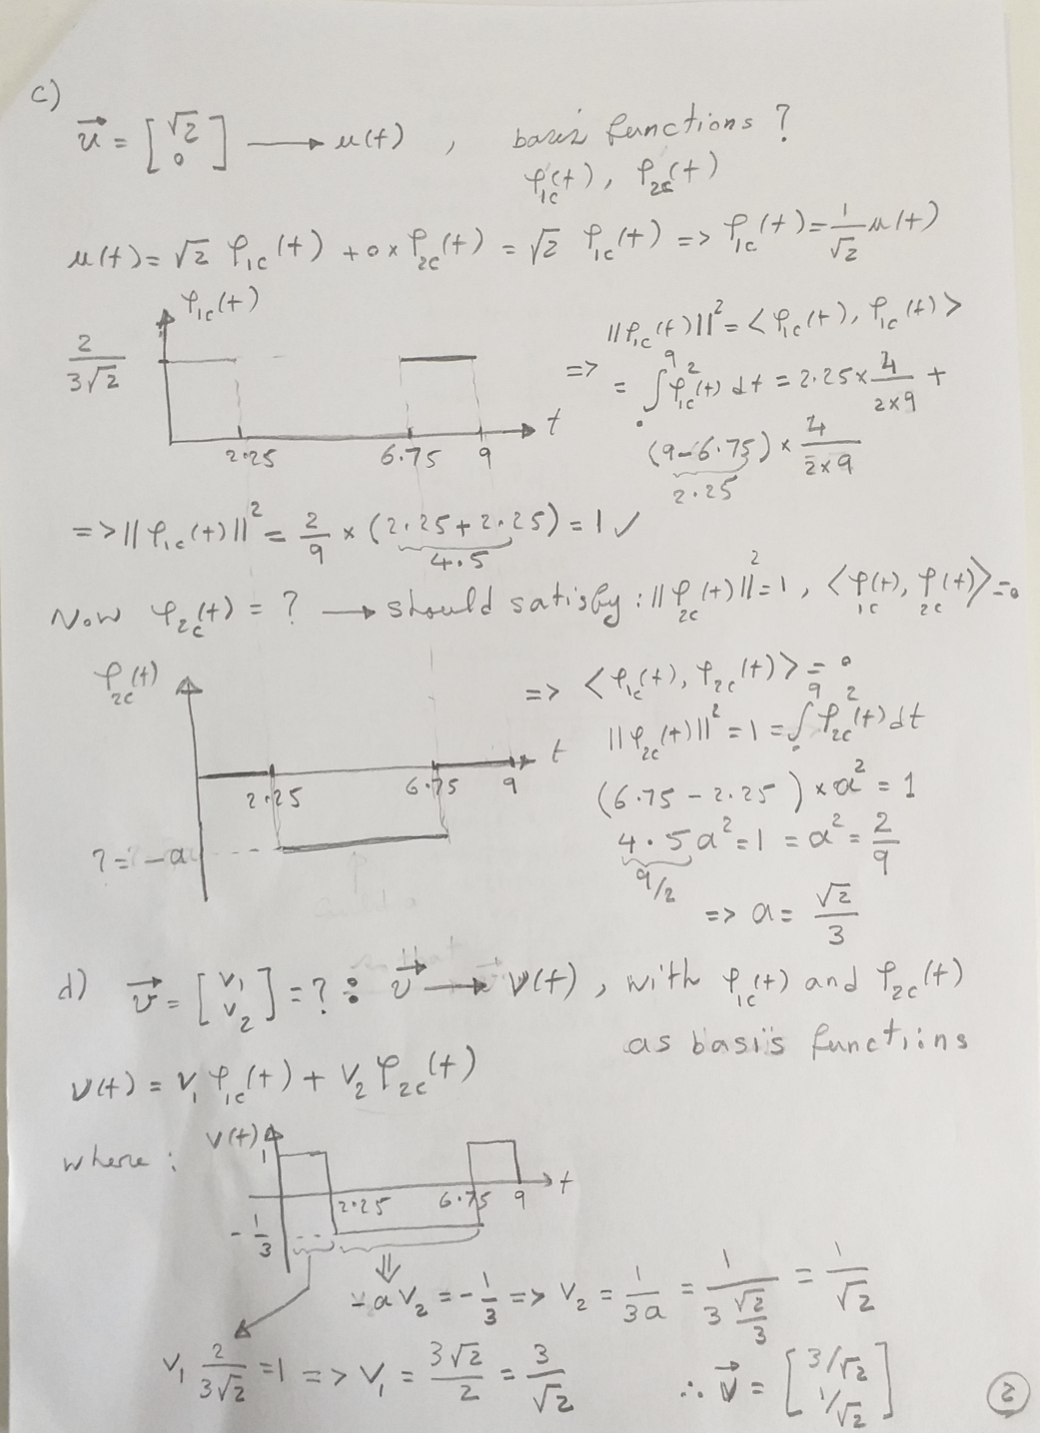 c)
u⃗ = [√2 0] → u(t) , basis functions ?
φ1c(t) , φ2c(t)
u(t) = √2 φ1c(t) + 0 × φ2c(t) = √2 φ1c(t) => φ1c(t) = 1/√2 u(t)
φ1c(t)
2/3√2
2.25 6.75 9 t
=> ||φ1c(t)||² = <φ1c(t), φ1c(t)>
= ∫₀⁹ φ1c²(t) dt = 2.25 × 4/2×9 +
(9-6.75) × 4/2×9
2.25
=> ||φ1c(t)||² = 2/9 × (2.25 + 2.25) = 1 ✓
4.5
Now φ2c(t) = ? → should satisfy : ||φ2c(t)||² = 1 , <φ1c(t), φ2c(t)> = 0
φ2c(t)
2.25 6.75 9 t
? = -a
=> <φ1c(t), φ2c(t)> = 0
||φ2c(t)||² = 1 = ∫₀⁹ φ2c²(t) dt
(6.75 - 2.25) × a² = 1
4.5 a² = 1 = a² = 2/9
9/2
=> a = √2/3
d) v⃗ = [v1 v2] = ? : v⃗ → v(t) , with φ1c(t) and φ2c(t)
as basis functions
v(t) = v1 φ1c(t) + v2 φ2c(t)
where : v(t)
1
2.25 6.75 9 t
-1/3
-a v2 = -1/3 => v2 = 1/3a = 1/3 √2/3 = 1/√2
v1 2/3√2 = 1 => v1 = 3√2/2 = 3/√2
∴ v⃗ = [3/√2 1/√2]
2